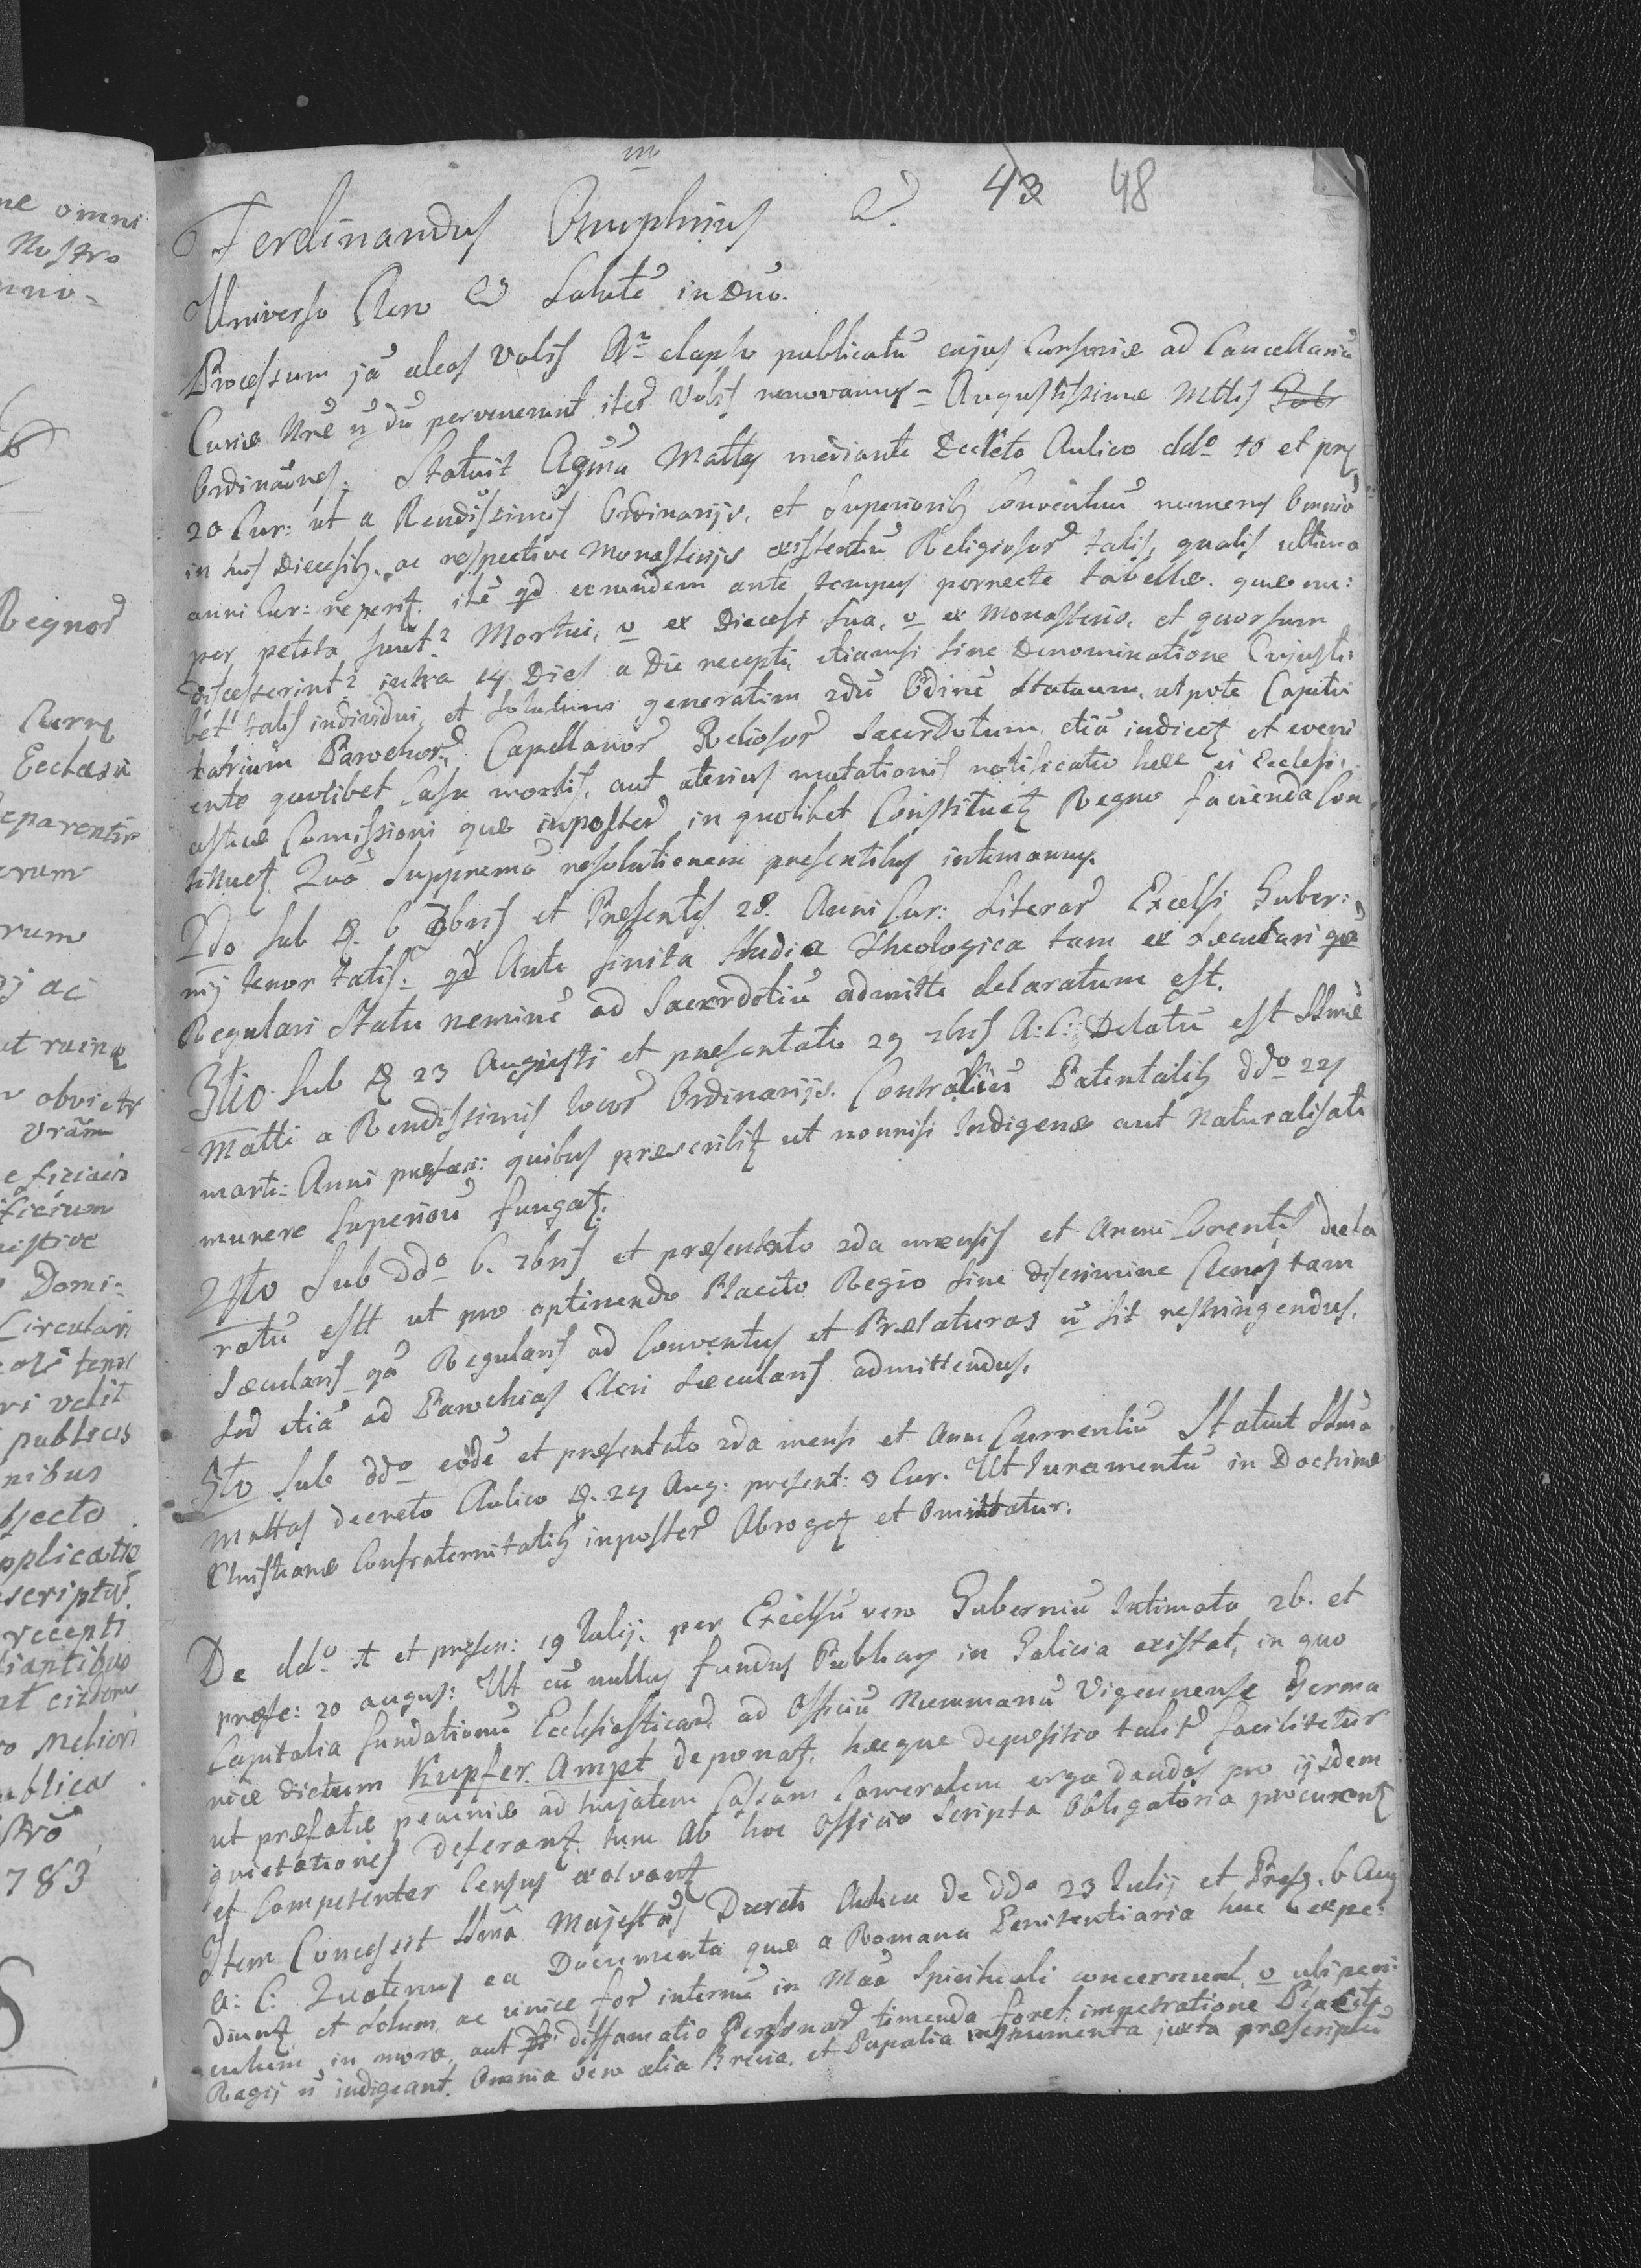 ne omni
Nostro
Regnor
Ecclesi
eparentir
erum
rum
ij ac
obviet
vram
Domi-
Circulari
ri velit
publicas
nibus
pplicatio
recepti
Meliori
ublica
783
43 48
Ferdinandus
Universo Clero & Salutē in Dno.
Processum jā aleas Vobis An̄ elapso publicatū cujus Cursoriæ ad Cancellariā
Curiæ Nr̄æ n̄ dū pervenerunt iter̄ Vobis renovamus = Augustissimæ Mttis
Ordināones. Statuit Mattas mediante Decreto Aulico ddo 16 et prȩ
20 Cur: ut a Rendissimis Ordinarijs, et Superiorib Conventuū numerus Omniū
in suis Diecesib. ac respective Monasterijs existentiū Religiosor̄ talis, qualis ultima
anni Cur: reperit. itē qd eorumdem ante tempus porrecte tabellæ. quæ nu:
per petita sunt? Mortui, v ex Diecesi sua, v ex Monasterio, et quorsum
discesserint? intra 14 Dies a Die recepti, etiamsi sine Denominatione Cujusli:
bet talis individui, et solum generatim 2dū Ordinē Statuum, utpote Capitu
larium Parochor, Capellanor Reliosor Sacerdotum, etiā indicet et eveni
ente quolibet Casu mortis, aut alterius mutationis notificatio hæc ei Ecclesi:
asticæ Comissioni quæ inposter̄ in quolibet Constituet Regno facienda Con
tinuet. Quā Suppremā resolutionem presentibus intimamus.
2do Sub D. 6 7bris et Presentes 28. Anni Cur: Literar Excelsi Guber:
nij tenor talis. qd Ante finita Studia Theologica tam ex Seculari qā
Regulari Statu neminē ad Sacerdotiū admitti delaratum est.
3tio Sub D 23 Augusti et presentato 29 7bris A: C: Delatū est Smæ
Matti a Rendissimis locor Ordinarijs. Patentalib ddo 24
marti: Anni quibus prescribit ut nonnisi Indigenæ aut Naturalisati
munere Superiorū fungat.
4to Sub ddo 6. 7bris et presentato 2da mensis et Anni Correntis decla
ratū est ut pro optinendo Placito Regio sine discrimine Clerus tam
Sæcularis qā Regularis ad Conventus et Prelaturas n̄ sit restringendus,
sed etiā ad Parochias Cleri Sæcularis admittendus.
5to Sub ddo eodē et presentato 2da mensi et Anni Currentiū Statuit Sma
Mattas decreto Aulico D. 24 Aug: present: 3 Cur. Ut Iuramentū in Doctrinæ
Christianæ Confraternitatib inposter̄ Abroget et Omittatur.
De ddo et presen: 19 Iulij. per Excelsū vero Guberniū Intimato 26. et
prese: 20 augus: Ut cū nullus fundus Publicus in Galicia existat, in quo
Capitalia fundationū Ecclesiasticar, ad Officiū Nummariū Viennense Germa
nice dictum Kupfer Ampt deponat. hæcque depositio talitr facilitetur
ut prefatæ pecuniæ ad hujatem Cassam Cameralem erga dandas pro ijsdem
quietationes Deferant. tum Ab hoc Officio Scripta Obligatoria procurent
et Competenter Census exolvant
Item Concessit Sma Majestas Decreto Aulico De ddo 23 Iulij et Pres. 6 Aug
a: C: Quatenus ea Documenta quæ a Romana Penitentiaria huc expe:
diunt, et solum, ac unice for internū in Maa Spirituali concernunt, v ubi peri:
culum in mora, aut diffamatio Personar timenda foret, impetratione Placit
Regij n̄ indigeant. Omnia vero alia Brevia, et Papalia instrumenta juxta præscriptū